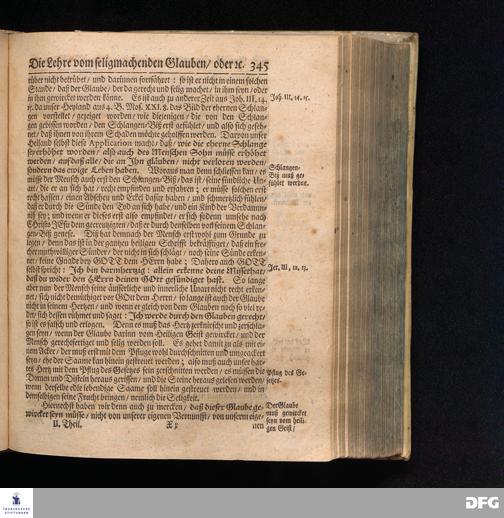 Die Lehre vom seligmachenden Glauben/ oder ꝛc. 345
rüber nicht betrübet/ und darinnen fortfähret: so ist er nicht in einem solchen
Stande/ daß der Glaube/ der da gerecht und selig machet/ in ihm seyn/ oder
in ihm gewircket werden könne. Es ist auch zu anderer Zeit aus Joh. III, 14.
15. da unser Heyland aus 4. B. Mos. XXI, 8. das Bild der ehernen Schlan-
gen vorstellet/ gezeiget worden/ wie diejenigen/ die von den Schlan-
gen gebissen worden/ den Schlangen-Biß erst gefühlet/ und also sich geseh-
net/ daß ihnen von ihrem Schaden möchte geholffen werden. Davon unser
Heiland selbst diese Application macht/ daß/ wie die eherne Schlange
sey erhöhet worden/ also auch des Menschen Sohn müsse erhöhet
werden/ auf daß alle/ die an Ihn gläuben/ nicht verloren werden/
sondern das ewige Leben haben. Woraus man denn schliessen kan/ es
müsse der Mensch auch erst den Schlangen-Biß/ das ist/ seine sündliche Un-
art/ die er an sich hat/ recht empfinden und erfahren; er müsse solchen erst
recht hassen/ einen Abscheu und Eckel dafür haben/ und schmertzlich fühlen/
daß er durch die Sünde den Tod an sich habe/ und ein Kind der Verdamm-
niß sey; und wenn er dieses erst also empfindet/ er sich sodenn umsehe nach
Christo JEsu dem gecreutzigten/ daß er durch denselben von seinem Schlan-
gen-Biß genese. Diß hat demnach der Mensch erst wohl zum Grunde zu
legen/ denn das ist in der gantzen heiligen Schrifft bekräfftiget/ daß ein fre-
cher muthwilliger Sünder/ der nicht in sich schläget/ noch seine Sünde erken-
net/ keine Gnade bey GOTT dem HErrn habe; Dahero auch GOTT
selbst spricht: Ich bin barmhertzig: allein erkenne deine Missethat/
daß du wider den HErrn deinen GOtt gesündiget hast. So lange
aber nun der Mensch seine äusserliche und innerliche Unart nicht recht erken-
net/ sich nicht demüthiget vor GOtt dem HErrn/ so lange ist auch der Glaube
nicht in seinem Hertzen/ und wenn er gleich von dem Glauben noch so viel re-
det/ sich dessen rühmet und saget: Ich werde durch den Glauben gerecht/
so ist es falsch und erlogen. Denn es muß das Hertz zerknirscht und zerschla-
gen seyn/ wenn der Glaube darinn vom Heiligen Geist gewircket/ und der
Mensch gerechtfertiget und selig werden soll. Es gehet damit zu als mit ei-
nem Acker/ der muß erst mit dem Pfluge wohl durchschnitten und umgeackert
seyn/ ehe der Saame kan hinein gestreuet werden; also muß auch unser har-
tes Hertz mit dem Pflug des Gesetzes seyn zerschnitten werden/ es müssen die
Dornen und Disteln heraus gerissen/ und die Steine heraus gelesen werden/
wenn derselbe edle lebendige Saame soll hinein gestreuet werden/ und in
demselbigen seine Frucht bringen/ nemlich die Seligkeit.
Hiernechst haben wir denn auch zu mercken/ daß dieser Glaube ge-
wircket seyn müsse/ nicht von unserer eigenen Vernunfft/ von unserm eige-
II. Theil. X x nen
Joh. III, 14. 15.
Schlangen-
Biß muß ge-
fühlet werden.
Jer. III, 12. 13.
Pflug des Ge-
setzes.
Der Glaube
muß gewircket
seyn vom heili-
gen Geist/
FRANCKESCHE
STIFTUNGEN
DFG